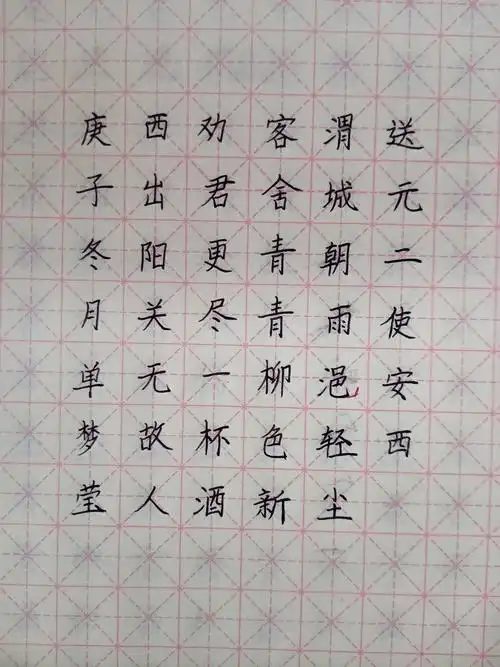 送元二使安西
渭城朝雨浥轻尘
客舍青青柳色新
劝君更尽一杯酒
西出阳关无故人
庚子冬月单梦莹